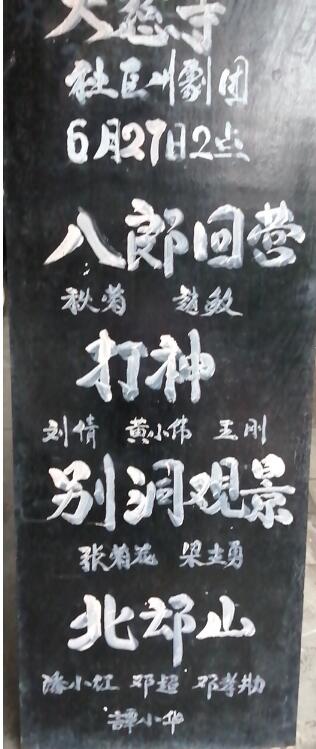 大慈寺
社区川剧团
6月27日2点
八郎回营
秋菊 赵敏
打神
刘情 黄小伟 王刚
别洞观景
张菊花 梁主勇
北邙山
潘小红 邓超 邓孝勋
谭小华